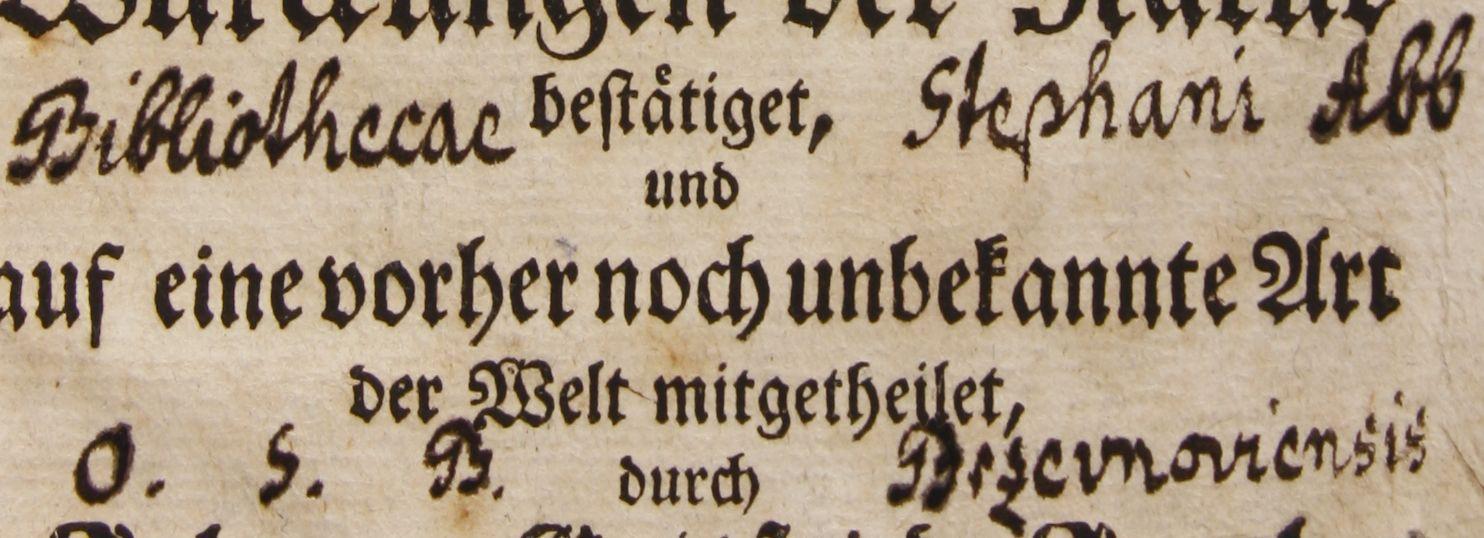 Würckungen der Natur
Bibliothecae bestätiget, Stephani Abb
und
auf eine vorher noch unbekannte Art
der Welt mitgetheilet,
O. S. B. durch Brzevnoviensis